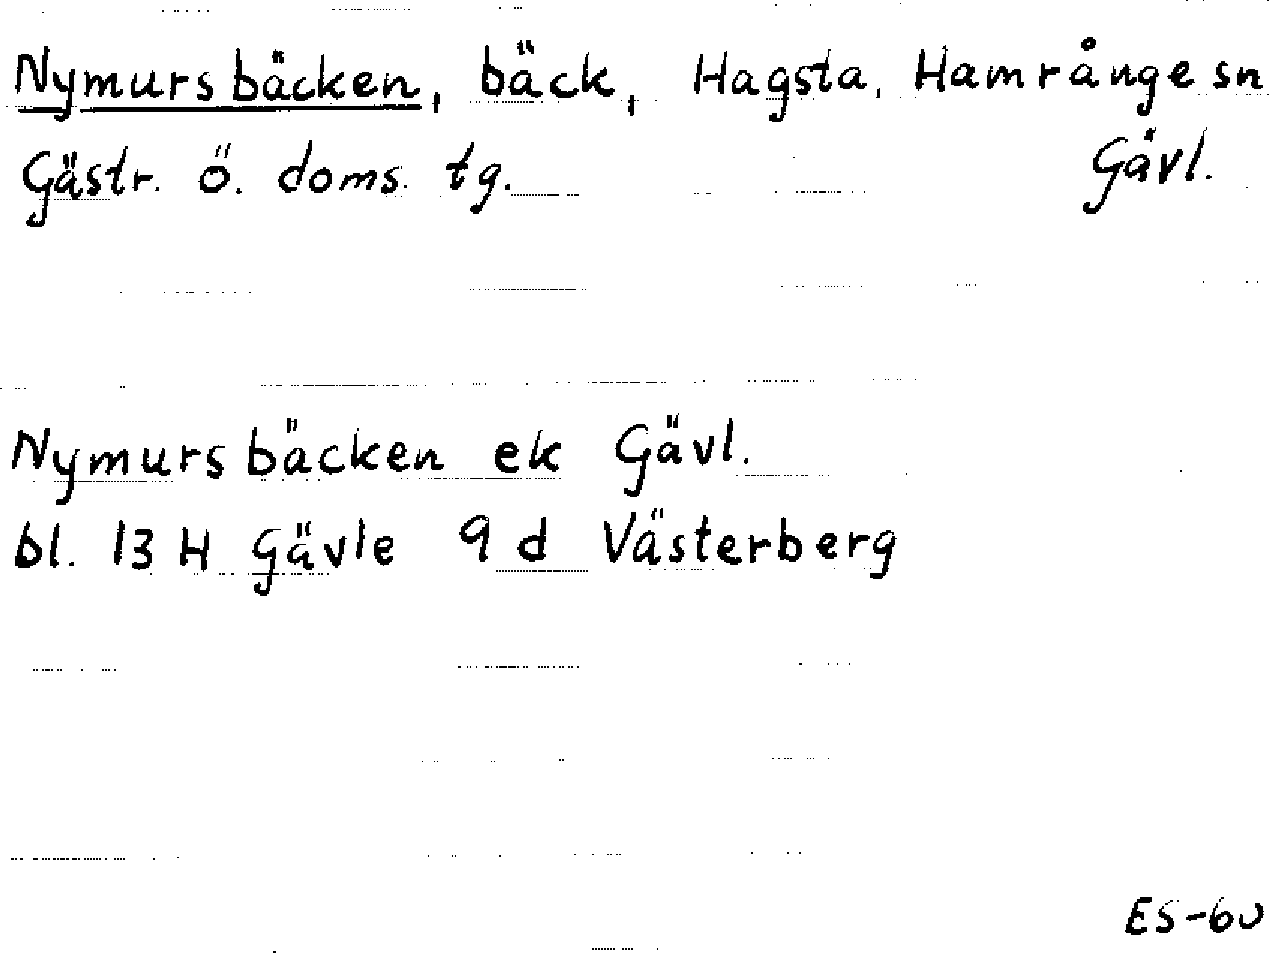 Nymursbäcken, bäck, Hagsta, Hamrånge sn
Gästr. ö. doms. tg. Gävl.
Nymursbäcken ek Gävl.
bl. 13 H Gävle 9 d Västerberg
ES-60